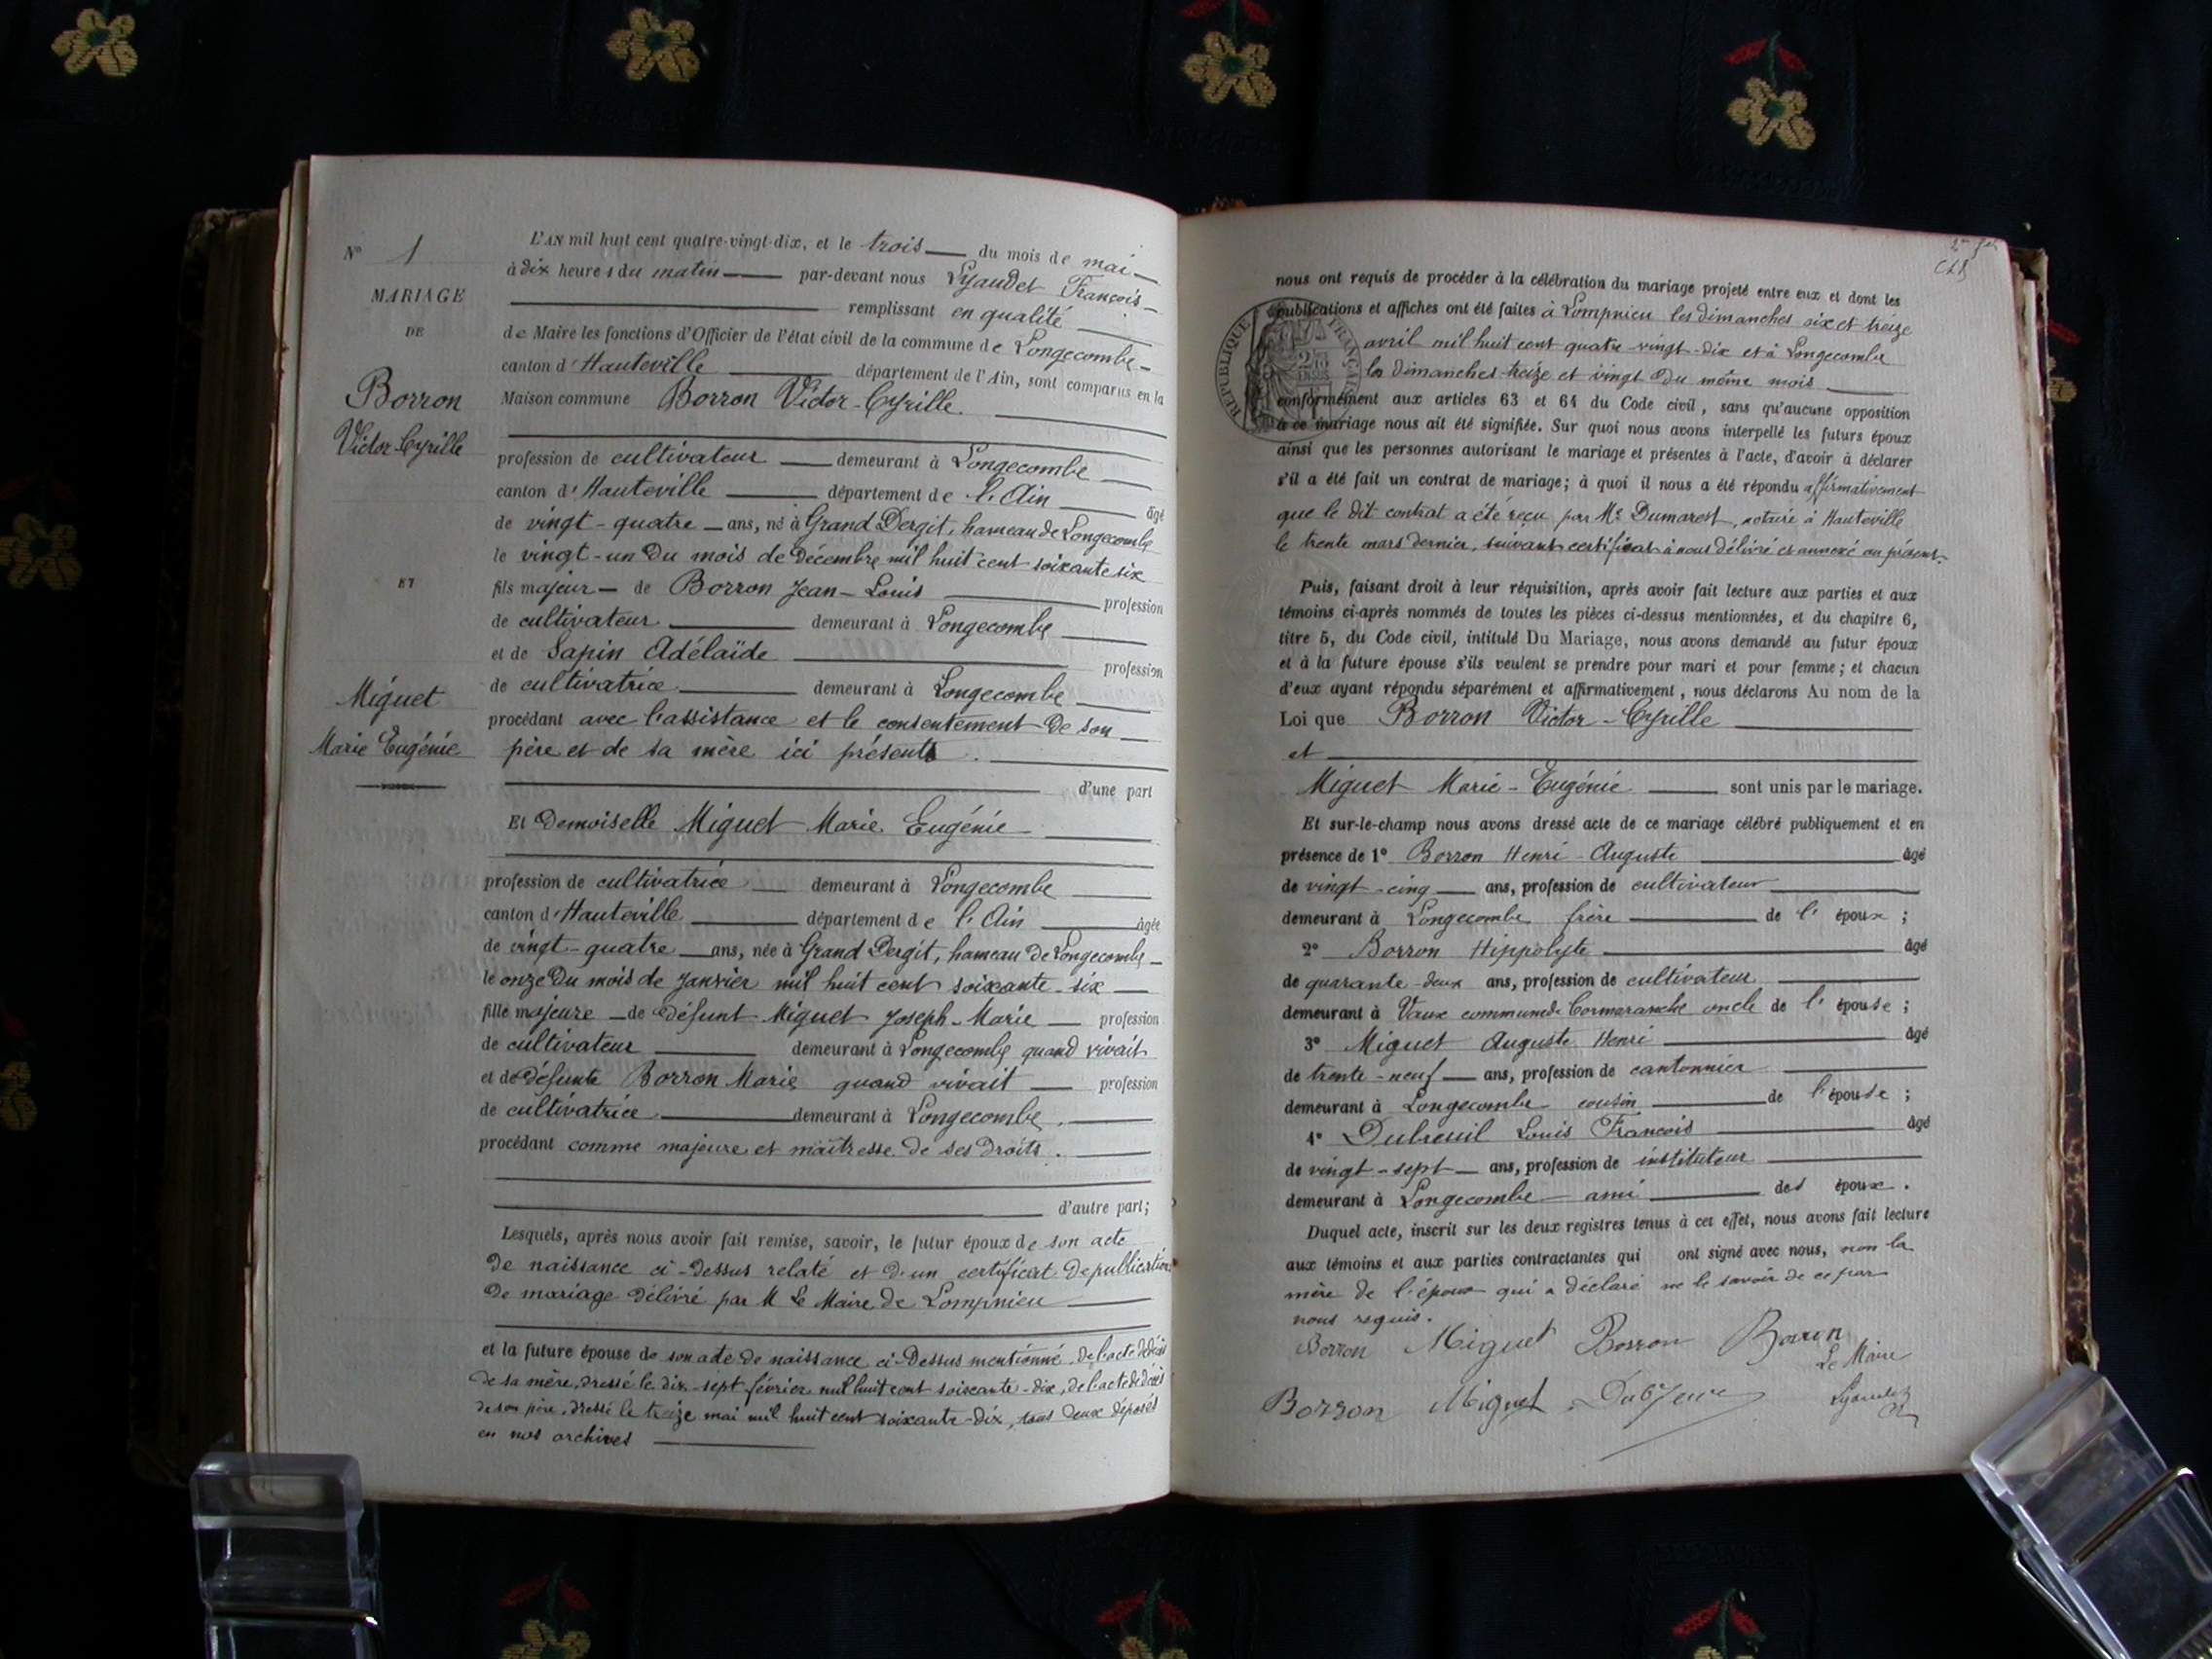 N° 1
MARIAGE
DE
Borron
Victor-Cyrille
ET
Miguet
Marie Eugénie
L'AN mil huit cent quatre-vingt-dix, et le trois du mois de mai
à dix heures du matin par-devant nous Lyaudet François
remplissant en qualité
de Maire les fonctions d'Officier de l'état civil de la commune de Longecombe
canton d'Hauteville département de l'Ain, sont comparus en la
Maison commune Borron Victor-Cyrille.
profession de cultivateur demeurant à Longecombe
canton d'Hauteville département de l'Ain âgé
de vingt-quatre ans, né à Grand Dergit, hameau de Longecombe
le vingt-un du mois de décembre mil huit cent soixante six
fils majeur de Borron Jean-Louis profession
de cultivateur demeurant à Longecombe
et de Sapin Adélaïde profession
de cultivatrice demeurant à Longecombe
procédant avec l'assistance et le consentement de son
père et de sa mère ici présents.
d'une part
Et Demoiselle Miguet Marie Eugénie
profession de cultivatrice demeurant à Longecombe
canton d'Hauteville département de l'Ain âgée
de vingt-quatre ans, née à Grand Dergit, hameau de Longecombe
le onze du mois de Janvier mil huit cent soixante-six
fille majeure de défunt Miguet Joseph-Marie profession
de cultivateur demeurant à Longecombe quand vivait
et de défunte Borron Marie quand vivait profession
de cultivatrice demeurant à Longecombe.
procédant comme majeure et maîtresse de ses droits.
d'autre part;
Lesquels, après nous avoir fait remise, savoir, le futur époux de son acte
de naissance ci-dessus relaté et d'un certificat de publication
de mariage délivré par M le Maire de Lompnieu
et la future épouse de son acte de naissance ci-dessus mentionné, de l'acte de décès
de sa mère, dressé le dix-sept février mil huit cent soixante-dix, de l'acte de décès
de son père, dressé le treize mai mil huit cent soixante-dix, tous deux déposés
en nos archives
nous ont requis de procéder à la célébration du mariage projeté entre eux et dont les
publications et affiches ont été faites à Lompnieu les dimanches six et treize
avril mil huit cent quatre-vingt-dix et à Longecombe
les dimanches treize et vingt du même mois
RÉPUBLIQUE FRANÇAISE
conformément aux articles 63 et 64 du Code civil, sans qu'aucune opposition
à ce mariage nous ait été signifiée. Sur quoi nous avons interpellé les futurs époux
ainsi que les personnes autorisant le mariage et présentes à l'acte, d'avoir à déclarer
s'il a été fait un contrat de mariage; à quoi il nous a été répondu affirmativement
que le dit contrat a été reçu par Me Dumarest, notaire à Hauteville
le trente mars dernier, suivant certificat à nous délivré et annexé au présent.
Puis, faisant droit à leur réquisition, après avoir fait lecture aux parties et aux
témoins ci-après nommés de toutes les pièces ci-dessus mentionnées, et du chapitre 6,
titre 5, du Code civil, intitulé Du Mariage, nous avons demandé au futur époux
et à la future épouse s'ils veulent se prendre pour mari et pour femme; et chacun
d'eux ayant répondu séparément et affirmativement, nous déclarons Au nom de la
Loi que Borron Victor-Cyrille
et
Miguet Marie-Eugénie sont unis par le mariage.
Et sur-le-champ nous avons dressé acte de ce mariage célébré publiquement et en
présence de 1° Borron Henri-Auguste âgé
de vingt-cinq ans, profession de cultivateur
demeurant à Longecombe frère de l'époux;
2° Borron Hippolyte âgé
de quarante-deux ans, profession de cultivateur
demeurant à Vaux commune de Cormaranche oncle de l'épouse;
3° Miguet Auguste Henri âgé
de trente-neuf ans, profession de cantonnier
demeurant à Longecombe cousin de l'épouse;
4° Dubreuil Louis François âgé
de vingt-sept ans, profession de instituteur
demeurant à Longecombe ami des époux.
Duquel acte, inscrit sur les deux registres tenus à cet effet, nous avons fait lecture
aux témoins et aux parties contractantes qui ont signé avec nous, non la
mère de l'époux qui a déclaré ne le savoir de ce par
nous requis.
Borron Miguet Borron Borron
Le Maire
Borron Miguet Lyaudet